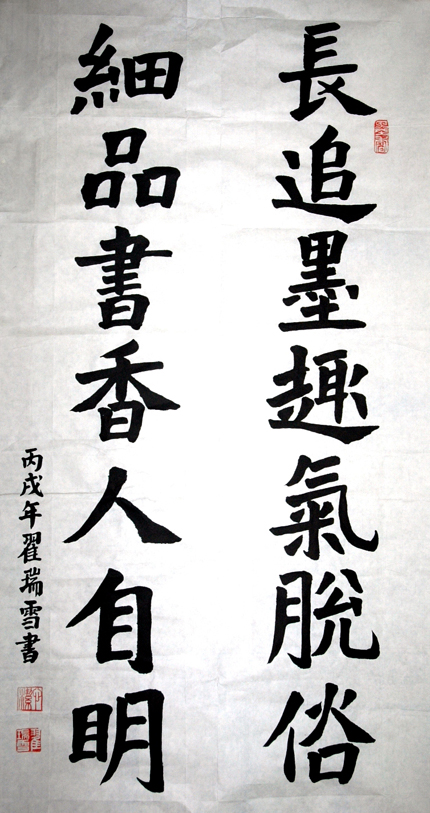 長追墨趣氣脫俗
細品書香人自明
丙戌年翟瑞雪書